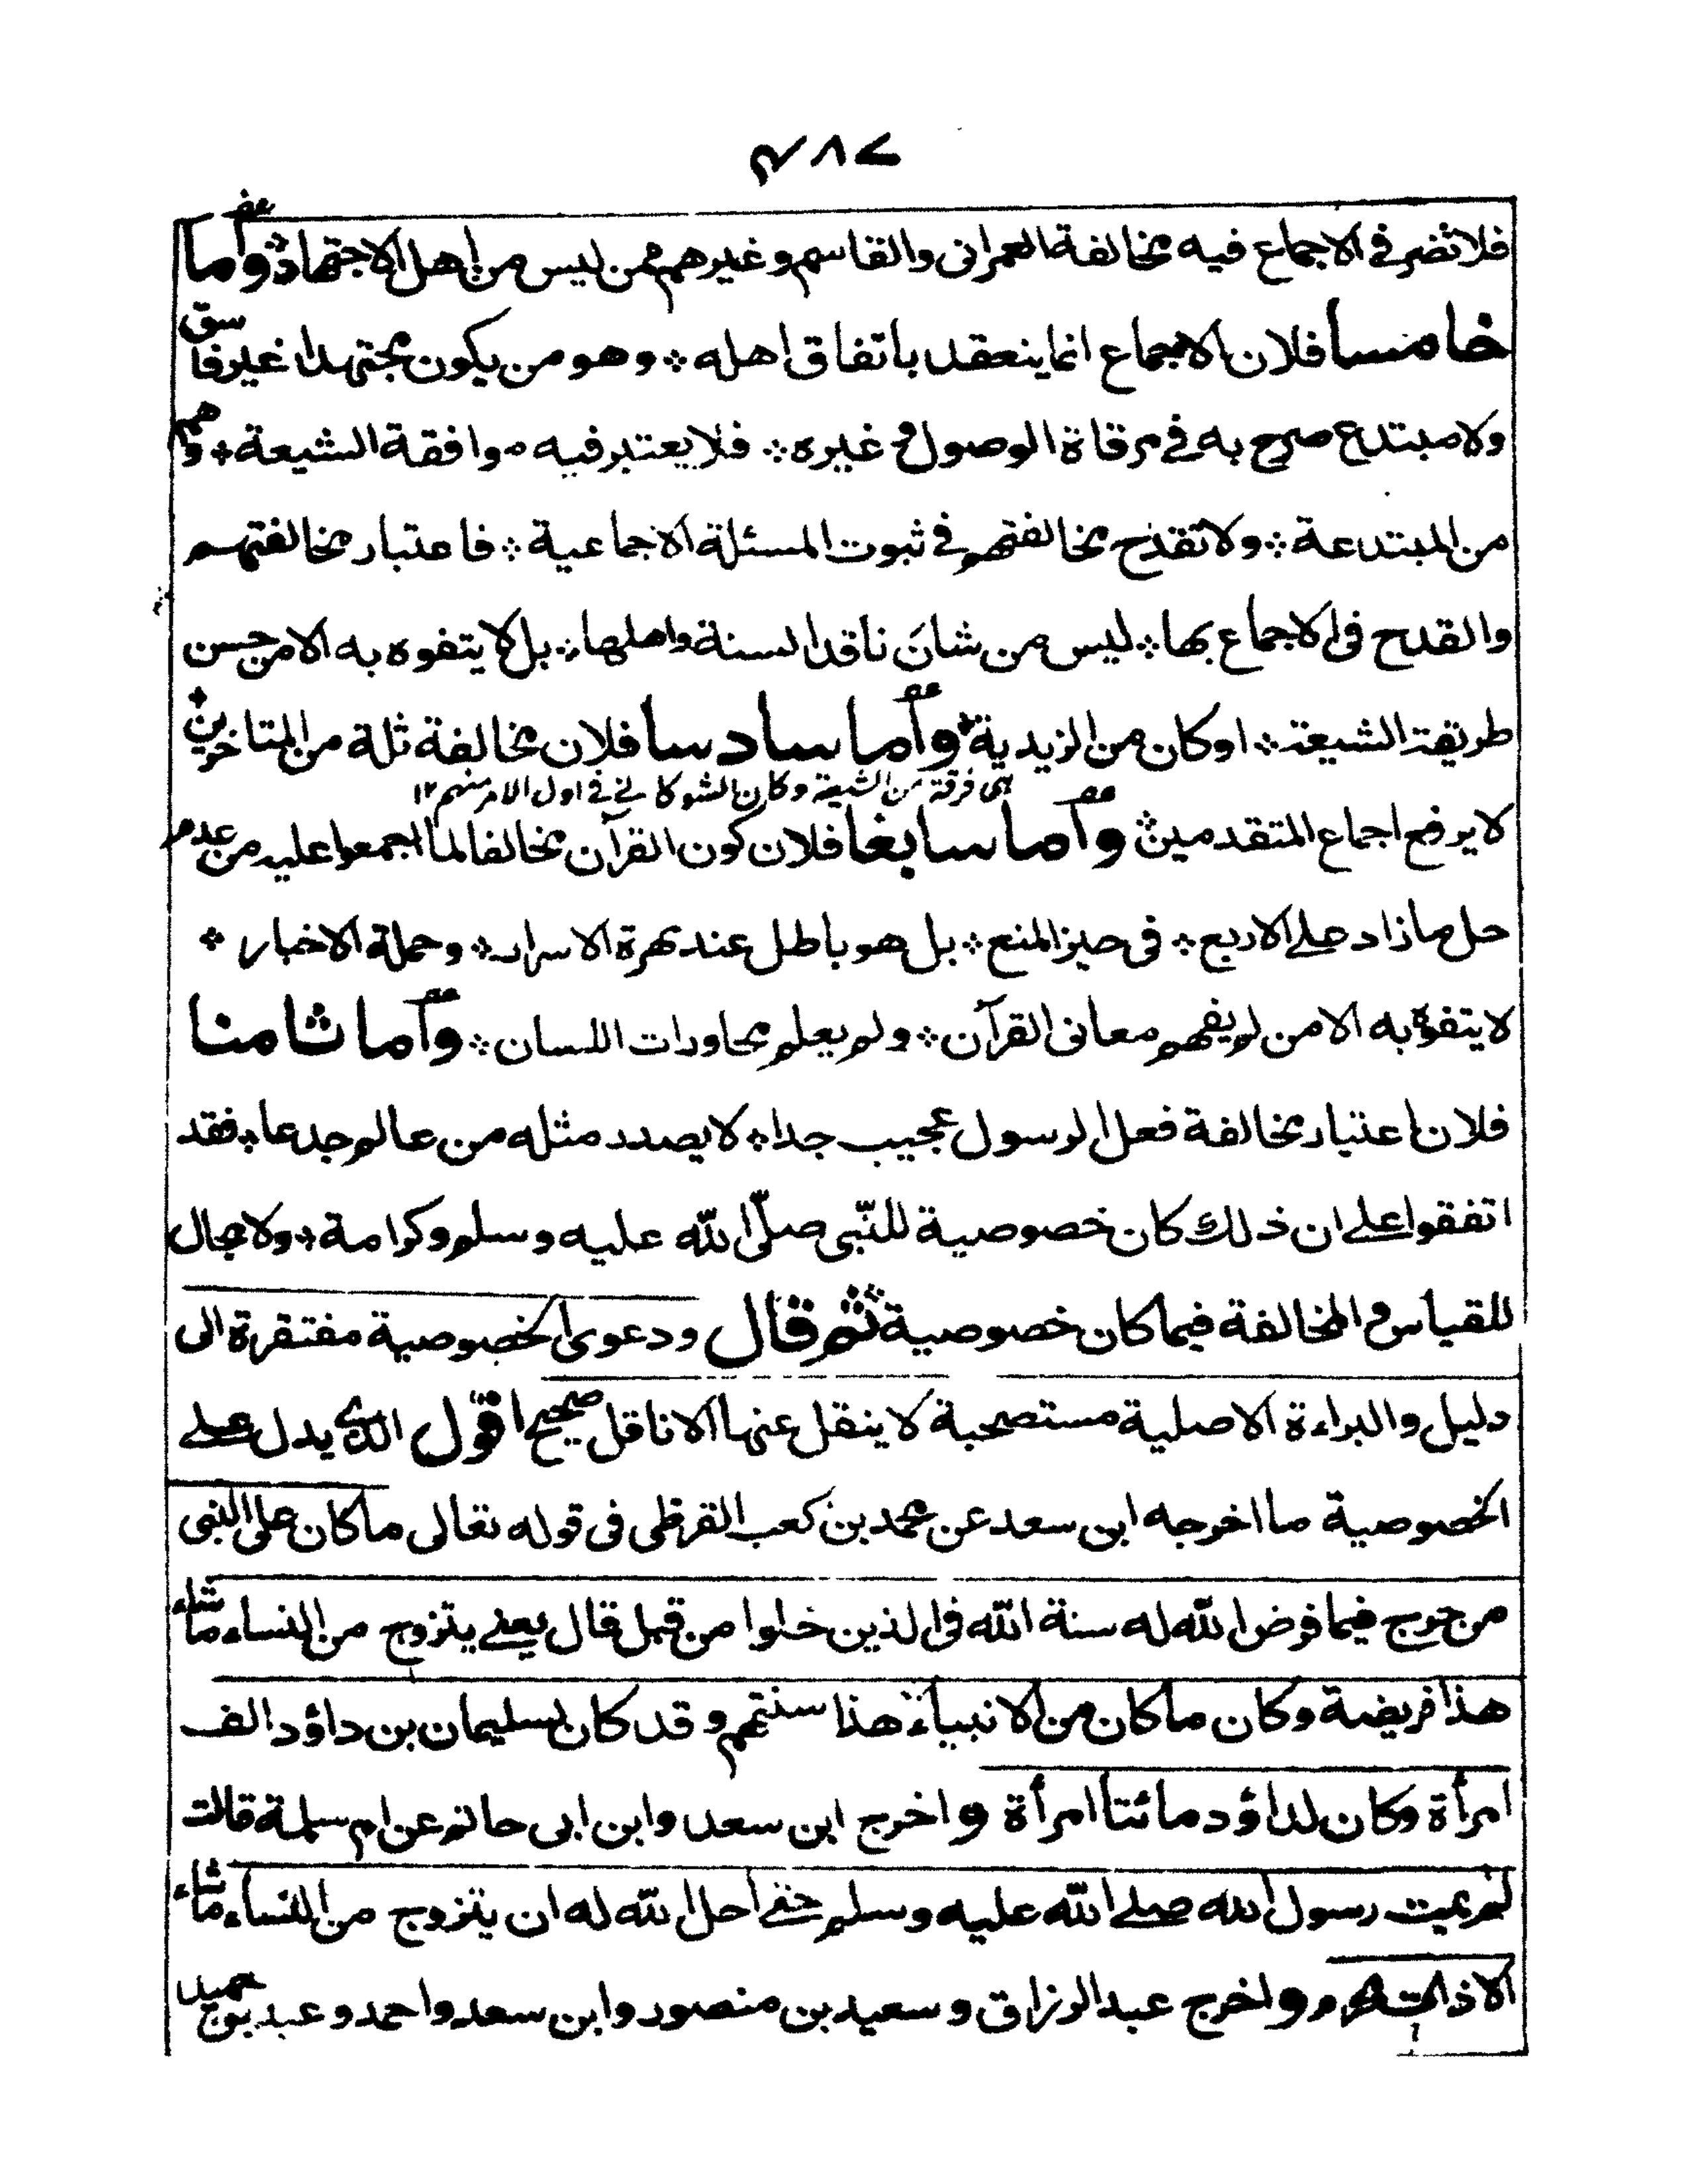 ۴۸۷
فلا تضر فى الاجماع فيه مخالفة العمرانى والقاسم وغيرهم ممن ليس من اهل الاجتهاد وأما
خامسا فلان الاجماع انما ينعقد باتفاق اهله ※ وهو من يكون مجتهدا غير فاسق
ولا مبتدع صرح به فى مرقاة الوصول وغيره ※ فلا يعتبر فيه موافقة الشيعة ※ وهم
من المبتدعة ※ ولا تقدح مخالفتهم فى ثبوت المسئلة الاجماعية ※ فاعتبار مخالفتهم
والقدح فى الاجماع بها ※ ليس من شان ناقد السنة واهلها ※ بل لا يتفوه به الا من حسن
طريقة الشيعة ※ او كان من الزيدية ※ وأما سادسا فلان مخالفة ثلة من المتاخرين ※
هى فرقة من الشيعة وكان الشوكانى فى اول الامر منهم ١٢
لا يرفع اجماع المتقدمين ※ وأما سابعا فلان كون القرآن مخالفا لما اجمعوا عليه من عدم
حل ما زاد على الاربع ※ فى حيز المنع ※ بل هو باطل عند مهرة الاسرار ※ وحملة الاخبار ※
لا يتفوه به الا من لم يفهم معانى القرآن ※ ولم يعلم محاورات اللسان ※ وأما ثامنا
فلان اعتبار مخالفة فعل الرسول عجيب جدا ※ لا يصدر مثله من عالم جدعا ※ فقد
اتفقوا على ان ذلك كان خصوصية للنّبى صلّى اللّه عليه وسلم وكرامة ※ ولا مجال
للقياس والمخالفة فيما كان خصوصية ※ ثم قال ودعوى الخصوصية مفتقرة الى
دليل والبراءة الاصلية مستصحبة لا ينقل عنها الا ناقل صحيح اقول الذى يدل على
الخصوصية ما اخرجه ابن سعد عن محمد بن كعب القرظى فى قوله تعالى ما كان على النبى
من حرج فيما فرض اللّه له سنة اللّه فى الذين خلوا من قبل قال يعنى يتزوج من النساء ما شاء
هذا فريضة وكان ما كان من الانبياء هذا سنتهم وقد كان لسليمان بن داؤد الف
امرأة وكان لداؤد مائتا امرأة واخرج ابن سعد وابن ابى حاتم عن ام سلمة قالت
لم يمت رسول اللّه صلى اللّه عليه وسلم حتى احل اللّه له ان يتزوج من النساء ما شاء
الا ذات محرم واخرج عبد الرزاق وسعيد بن منصور وابن سعد واحمد وعبد بن حميد